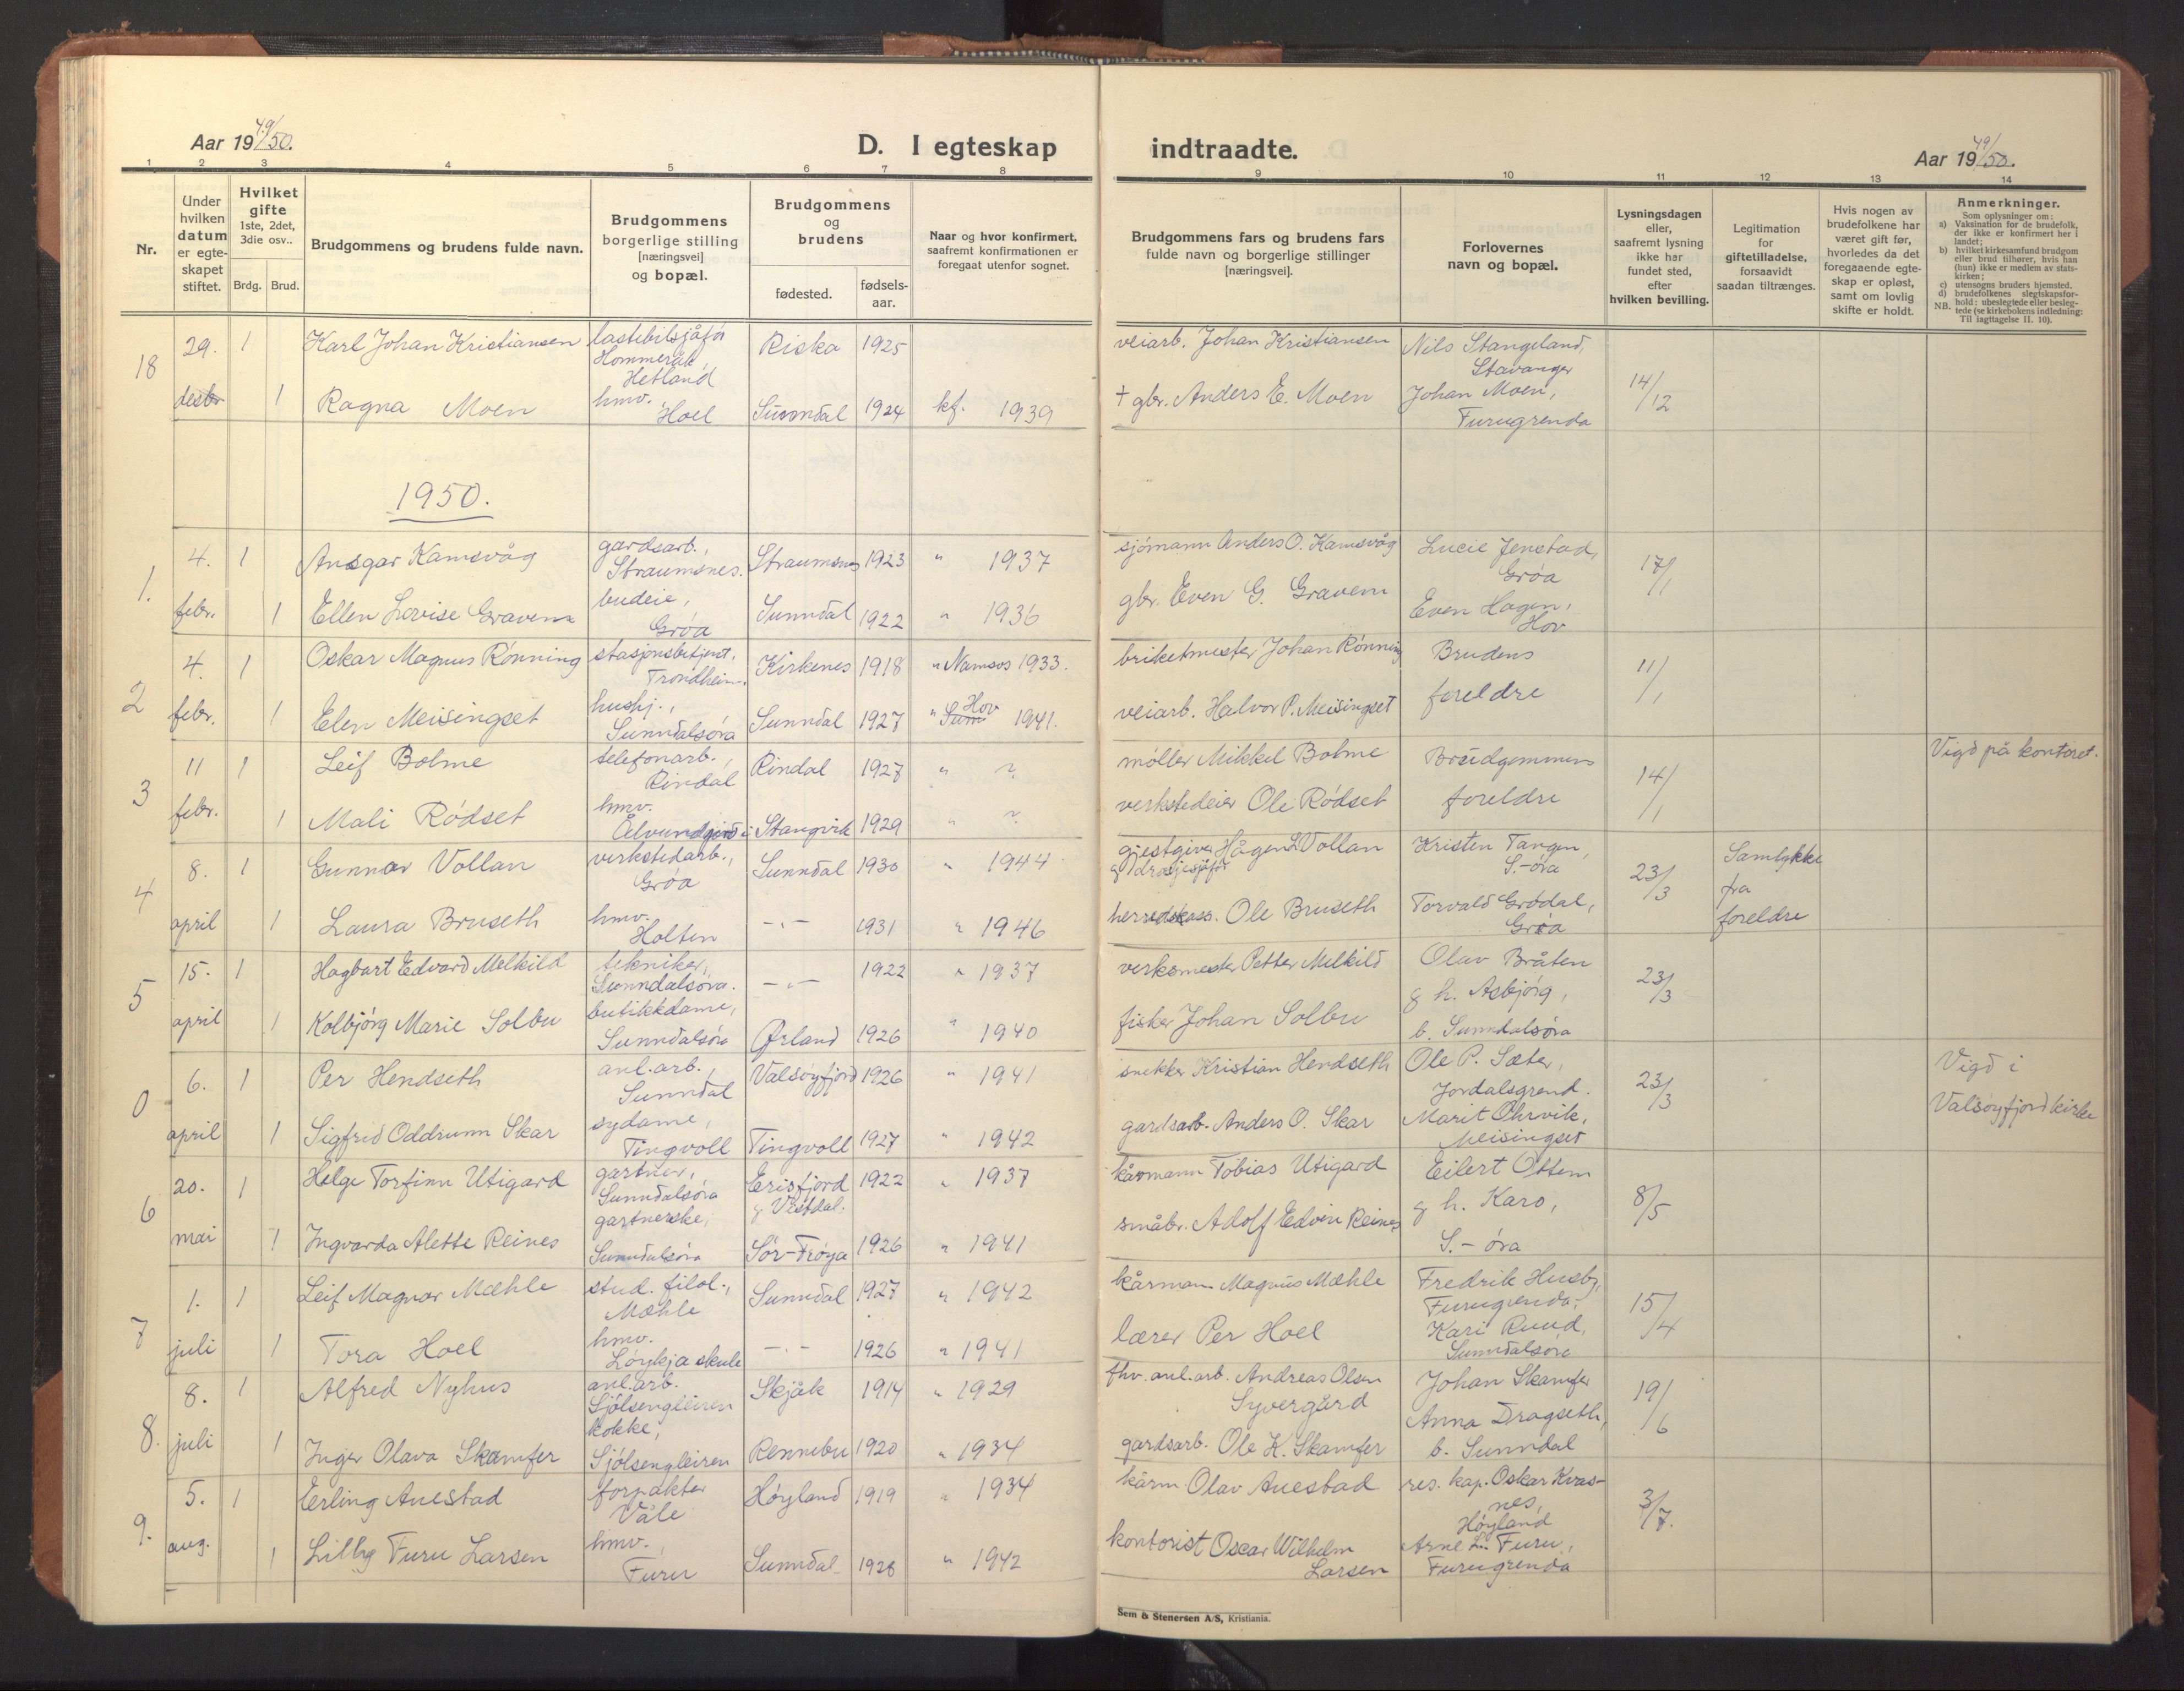 Aar 19 49/50.
D. I egteskap
indtraadte.
Aar 19 49/50.
1 2 3 4 5 6 7 8 9 10 11 12 13 14
Nr.
Under hvilken datum er egte-skapet stiftet.
Hvilket gifte 1ste, 2det, 3die osv..
Brdg. Brud.
Brudgommens og brudens fulde navn.
Brudgommens borgerlige stilling [næringsvei] og bopæl.
Brudgommens og brudens
fødested.
fødsels-aar.
Naar og hvor konfirmert, saafremt konfirmationen er foregaat utenfor sognet.
Brudgommens fars og brudens fars fulde navn og borgerlige stillinger [næringsvei].
Forlovernes navn og bopæl.
Lysningsdagen eller, saafremt lysning ikke har fundet sted, efter hvilken bevilling.
Legitimation for giftetilladelse, forsaavidt saadan tiltrænges.
Hvis nogen av brudefolkene har været gift før, hvorledes da det foregaaende egte-skap er opløst, samt om lovlig skifte er holdt.
Anmerkninger.
Som oplysninger om:
a) Vaksination for de brudefolk, der ikke er konfirmert her i landet;
b) hvilket kirkesamfund brudgom eller brud tilhører, hvis han (hun) ikke er medlem av stats-kirken;
c) utensogns bruders hjemsted.
d) brudefolkenes slegtskapsfor-hold: ubeslegtede eller besleg-tede (se kirkebokens indledning: Til iagttagelse II. 10).
NB.
18 29. desbr 1 Karl Johan Kristiansen lastebilsjåfør Hommersåk, Hetland Riska 1925 veiarb. Johan Kristiansen Nils Stangeland, Stavanger 14/12
1 Ragna Moen hmv. Hoel Sunndal 1924 kf. 1939 + gbr. Anders E. Moen Johan Moen, Furugrenda
1950.
1. 4. febr. 1 Ansgar Kamsvåg gardsarb., Straumsnes. Straumsnes 1923 " 1937 sjömann Anders O. Kamsvåg Lucie Jenstad, Grøa 17/1
1 Ellen Lovise Gravem budeie, Grøa Sunndal 1922 " 1936 gbr. Even G. Gravem Even Hagen, Hov
2 4. febr. 1 Oskar Magnus Rönning stasjonsbetjent, Trondheim. Kirkenes 1918 " Namsos 1933. briketmester Johan Rönning Brudens foreldre 11/1
1 Elen Meisingset hushj., Sunndalsöra Sunndal 1927 " Hov 1941. veiarb. Halvor P. Meisingset
3 11 febr. 1 Leif Bolme telefonarb., Rindal Rindal 1927 " ? möller Mikkel Bolme Brudgommens foreldre 14/1 Vigd på kontoret.
1 Mali Rödset hmv. Ålvundfjord i Stangvik 1929 " ? verkstedeier Ole Rödset
4 8. april 1 Gunnar Vollan verkstedarb., Grøa Sunndal 1930 " 1944 gjestgiver Hågen L Vollan & drosjesjåför Kristen Tangen, S.-öra 23/3 Samtykke fra foreldre
1 Laura Bruseth hmv. Holten -"- 1931 " 1946 herredskass. Ole Bruseth Torvald Grödal, Grøa
5 15. april 1 Hagbart Edvard Melkild tekniker, Sunndalsöra. -"- 1922 " 1937 verksmester Petter Melkild Olav Bråten & h. Asbjörg, b. Sunndalsöra 23/3
1 Kolbjörg Marie Solbu butikkdame, Sunndalsöra Ørland 1926 " 1940 fisker Johan Solbu
0 6. april 1 Per Hendseth anl.arb., Sunndal Valsöyfjord 1926 " 1941 snekker Kristian Hendseth Ole P. Sæter, Jordalsgrend. 23/3 Vigd i Valsöyfjord kirke
1 Sigfrid Oddrunn Skar sydame, Tingvoll Tingvoll 1927 " 1942 gardsarb. Anders O. Skar Marit Ohrvik, Meisingset
6 20. mai 1 Helge Torfinn Utigard gartner, Sunndalsöra Erisfjord & Vistdal. 1922 " 1937 kårmann Tobias Utigard Eilert Ottem & h. Karo, S.-öra 8/5
1 Ingvarda Alette Reines gartnerske, Sunndalsöra Sör-Fröya 1926 " 1941 småbr. Adolf Edvin Reines
7 1. juli 1 Leif Magnar Mæhle stud. filol., Mæhle Sunndal 1927 " 1942 kårmann Magnus Mæhle Fredrik Husby, Furugrenda, 15/4
1 Tora Hoel hmv. Löykja skule -"- 1926 " 1941 lærer Per Hoel Kari Ruud, Sunndalsöra
8. 8. juli 1 Alfred Nyhus anl.arb. Sjölsengleiren Skjåk 1914 " 1929 fhv. anl.arb. Andreas Olsen Syvergård Johan Skamfer Anna Dragseth, b. Sunndal 19/6
1 Inger Olava Skamfer kokke, Sjölsengleiren Rennebu 1920 " 1934 gardsarb. Ole K. Skamfer
9. 5. aug. 1 Erling Auestad forpakter Våle Höyland 1919 " 1934 kårm Olav Auestad res. kap. Oskar Kvas-nes, Höyland 3/7.
1 Lilly Furu Larsen hmv., Furu Sunndal 1928 " 1942 kontorist Oscar Wilhelm Larsen Arne L. Furu, Furugrenda
Sem & Stenersen A/S, Kristiania.